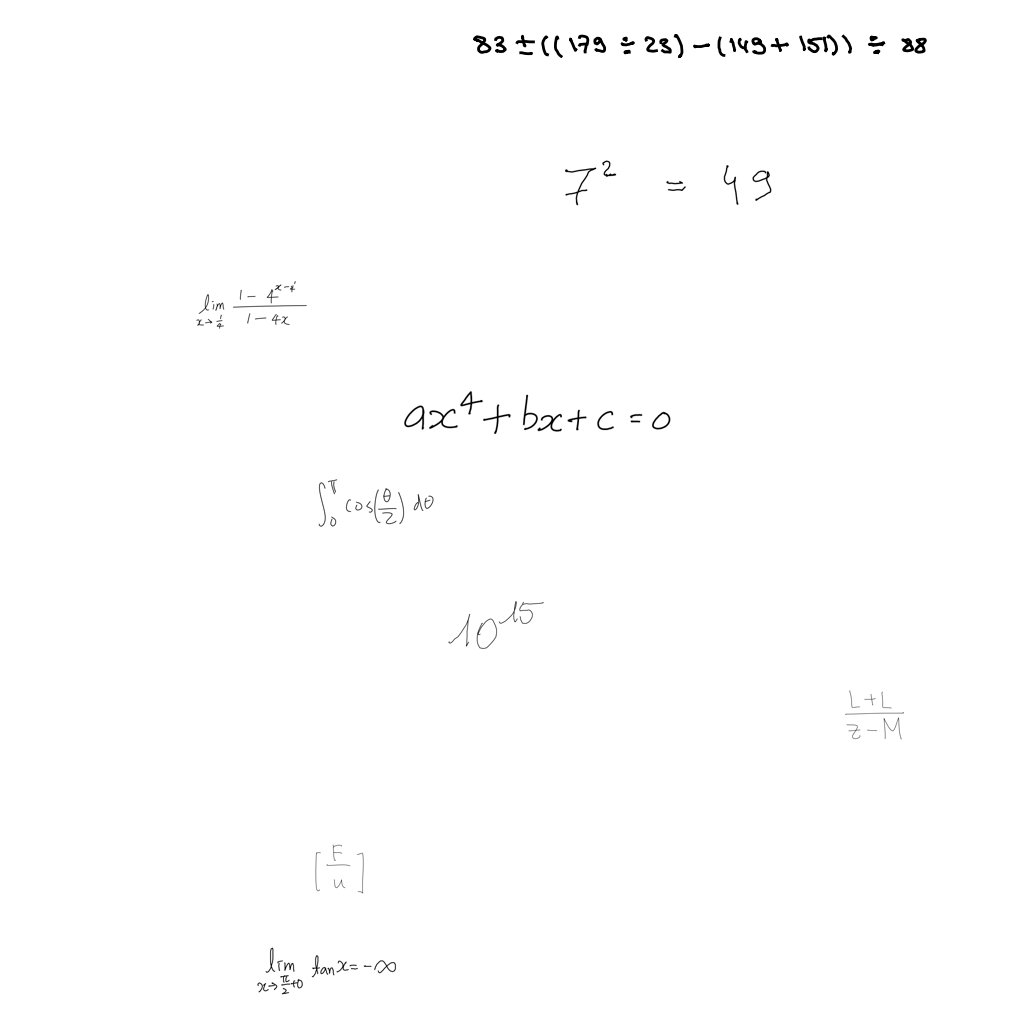 83 ± ((179 ÷ 23) − (149 + 151)) ÷ 88
7^2 = 49
lim_{x→\frac{1}{4}} \frac{1 - 4^{x-4}}{1 - 4x}
ax^4 + bx + c = 0
∫_0^π cos(\frac{θ}{2}) dθ
10^{15}
\frac{L+L}{z-M}
[\frac{F}{u}]
lim_{x→\frac{π}{2}+0} tan x = -∞